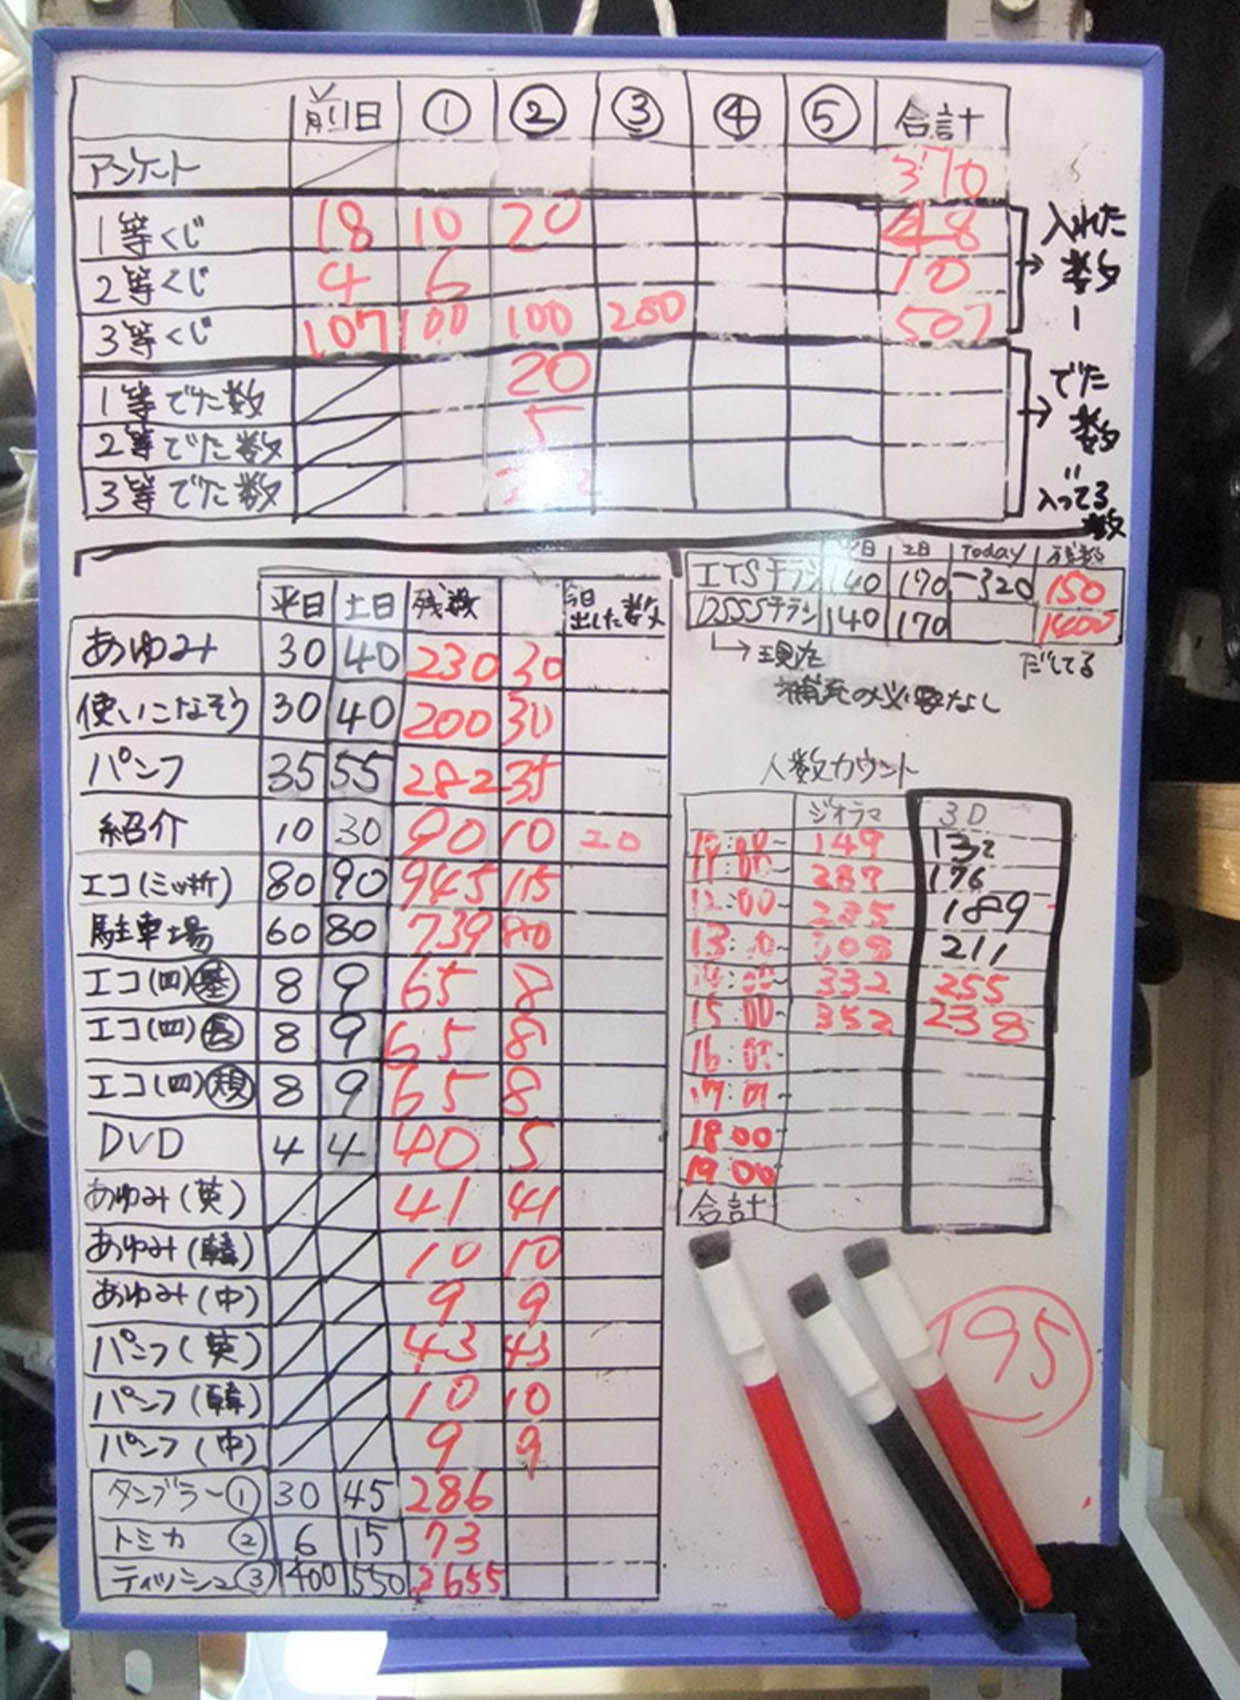 前日 ① ② ③ ④ ⑤ 合計
アンケート 370
1等くじ 18 10 20 48
2等くじ 4 6 10
3等くじ 107 100 100 200 507
入れた数
1等でた数 20
2等でた数 5
3等でた数
でた数
入ってる数
平日 土日 Today 残数
ITSチラシ 140 170 -320 150
DSSSチラシ 140 170 1400
→現在 だしてる
補充の必要なし
平日 土日 残数 今日出した数
あゆみ 30 40 230 30
使いこなそう 30 40 200 30
パンフ 35 55 282 35
紹介 10 30 90 10 20
エコ(三ッ折) 80 90 945 115
駐車場 60 80 739 80
エコ(四)基 8 9 65 8
エコ(四)長 8 9 65 8
エコ(四) 8 9 65 8
DVD 4 4 40 5
あゆみ(英) 41 41
あゆみ(韓) 10 10
あゆみ(中) 9 9
パンフ(英) 43 43
パンフ(韓) 10 10
パンフ(中) 9 9
タンブラー① 30 45 286
トミカ ② 6 15 73
ティッシュ③ 400 550 2655
人数カウント
ジオラマ 3D
149 132
287 176
12:00~ 235 189
13: 0~ 308 211
14:00~ 332 255
15:00~ 352 238
16:0
17:0
18 00
19 00
合計
195